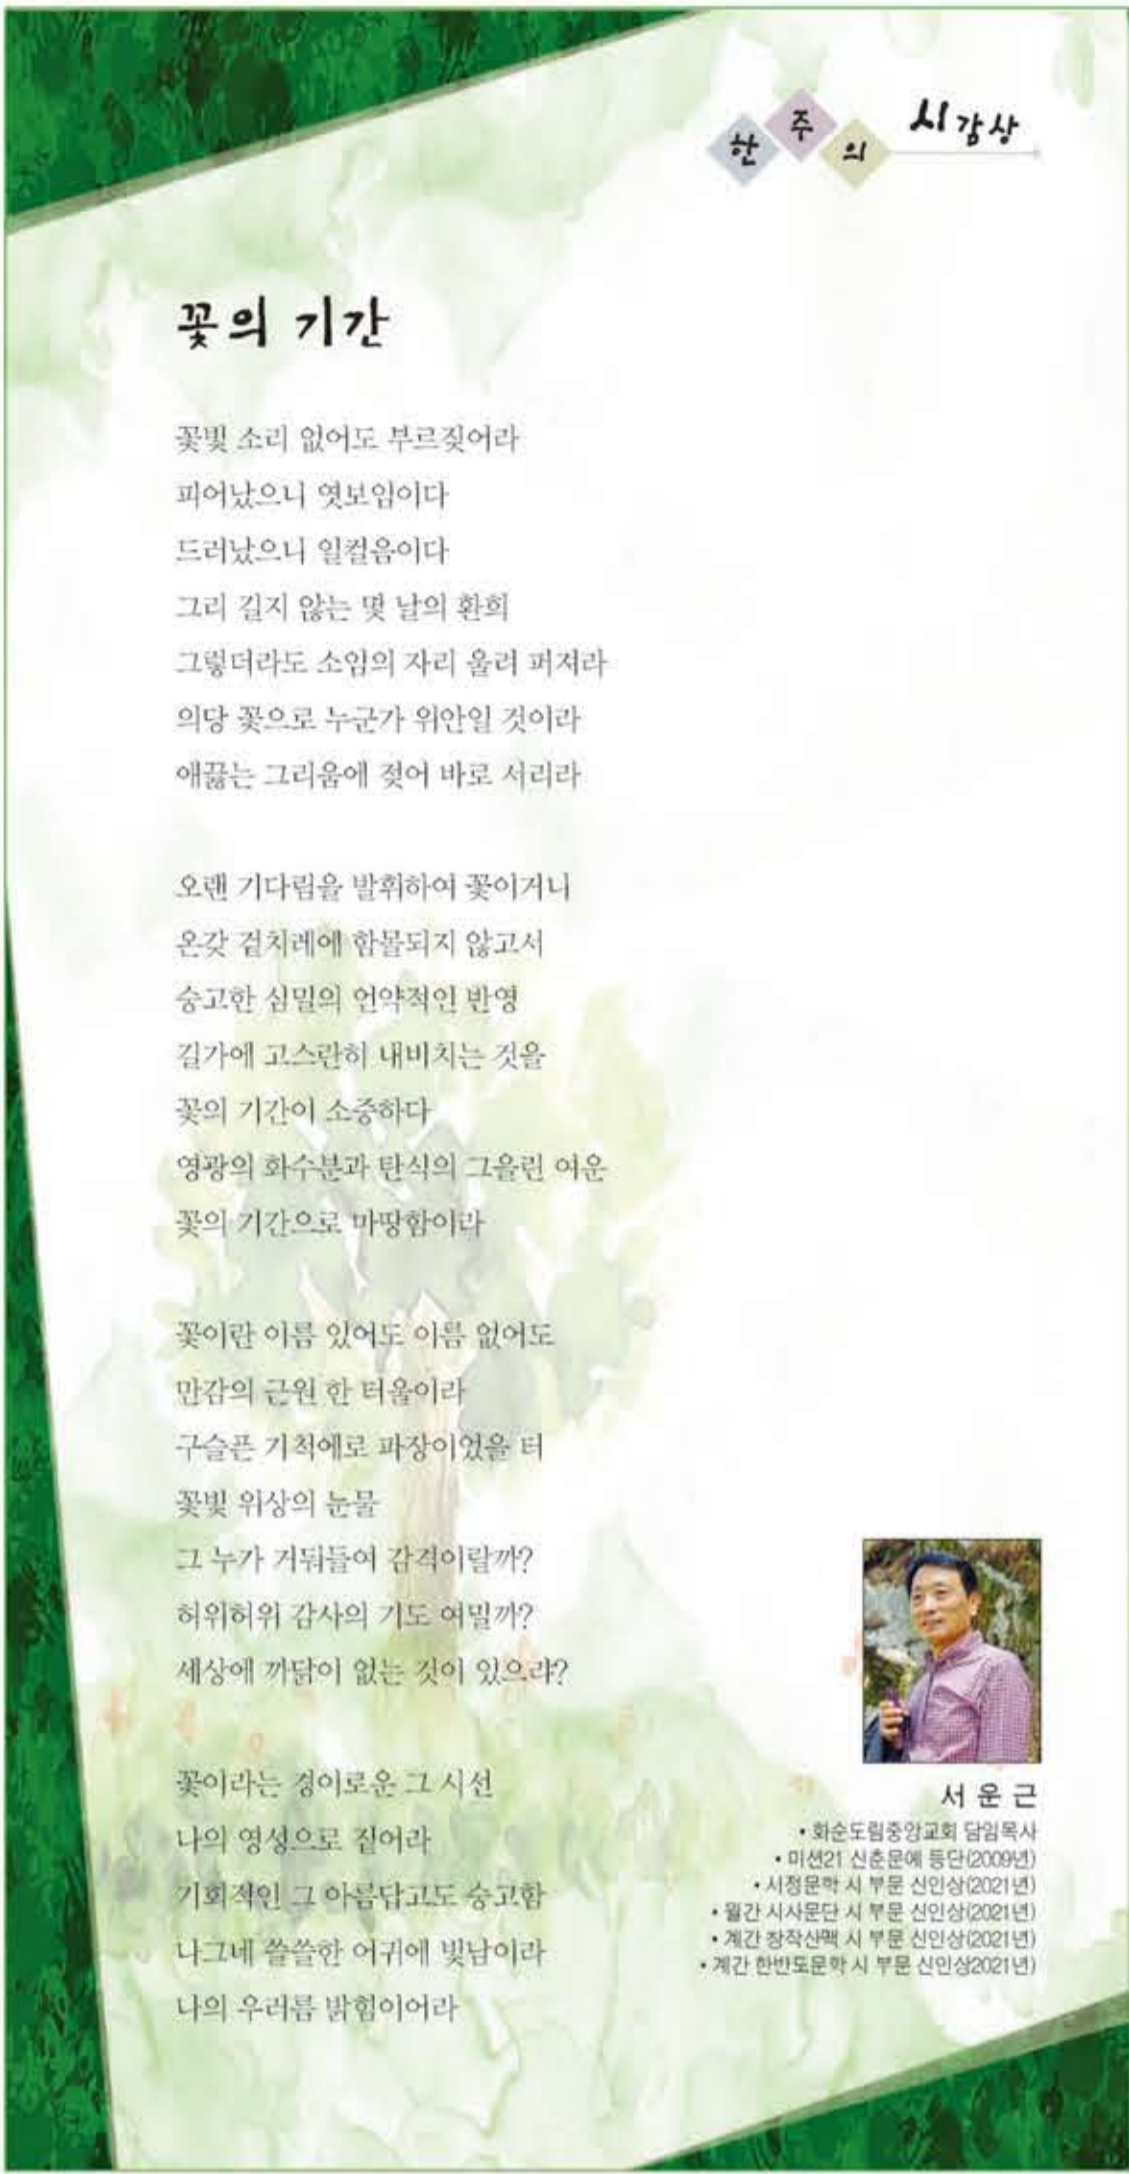 한 주의 시감상
꽃의 기간
꽃빛 소리 없어도 부르짖어라
피어났으니 엿보임이다
드러났으니 일컬음이다
그리 길지 않는 몇 날의 환희
그렇더라도 소임의 자리 울려 퍼져라
의당 꽃으로 누군가 위안일 것이라
애끓는 그리움에 젖어 바로 서리라
오랜 기다림을 발휘하여 꽃이거니
온갖 겉치레에 함몰되지 않고서
숭고한 심밀의 언약적인 반영
길가에 고스란히 내비치는 것을
꽃의 기간이 소중하다
영광의 화수분과 탄식의 그을린 여운
꽃의 기간으로 마땅함이라
꽃이란 이름 있어도 이름 없어도
만감의 근원 한 터울이라
구슬픈 기척에로 파장이었을 터
꽃빛 위상의 눈물
그 누가 거둬들여 감격이랄까?
허위허위 감사의 기도 여밀까?
세상에 까닭이 없는 것이 있으랴?
꽃이라는 경이로운 그 시선
나의 영성으로 짙어라
기회적인 그 아름답고도 숭고함
나그네 쓸쓸한 어귀에 빛남이라
나의 우러름 밝힘이어라
서 운 근
• 화순도림중앙교회 담임목사
• 미션21 신춘문예 등단(2009년)
• 서정문학 시 부문 신인상(2021년)
• 월간 시사문단 시 부문 신인상(2021년)
• 계간 창작산맥 시 부문 신인상(2021년)
• 계간 한반도문학 시 부문 신인상2021년)